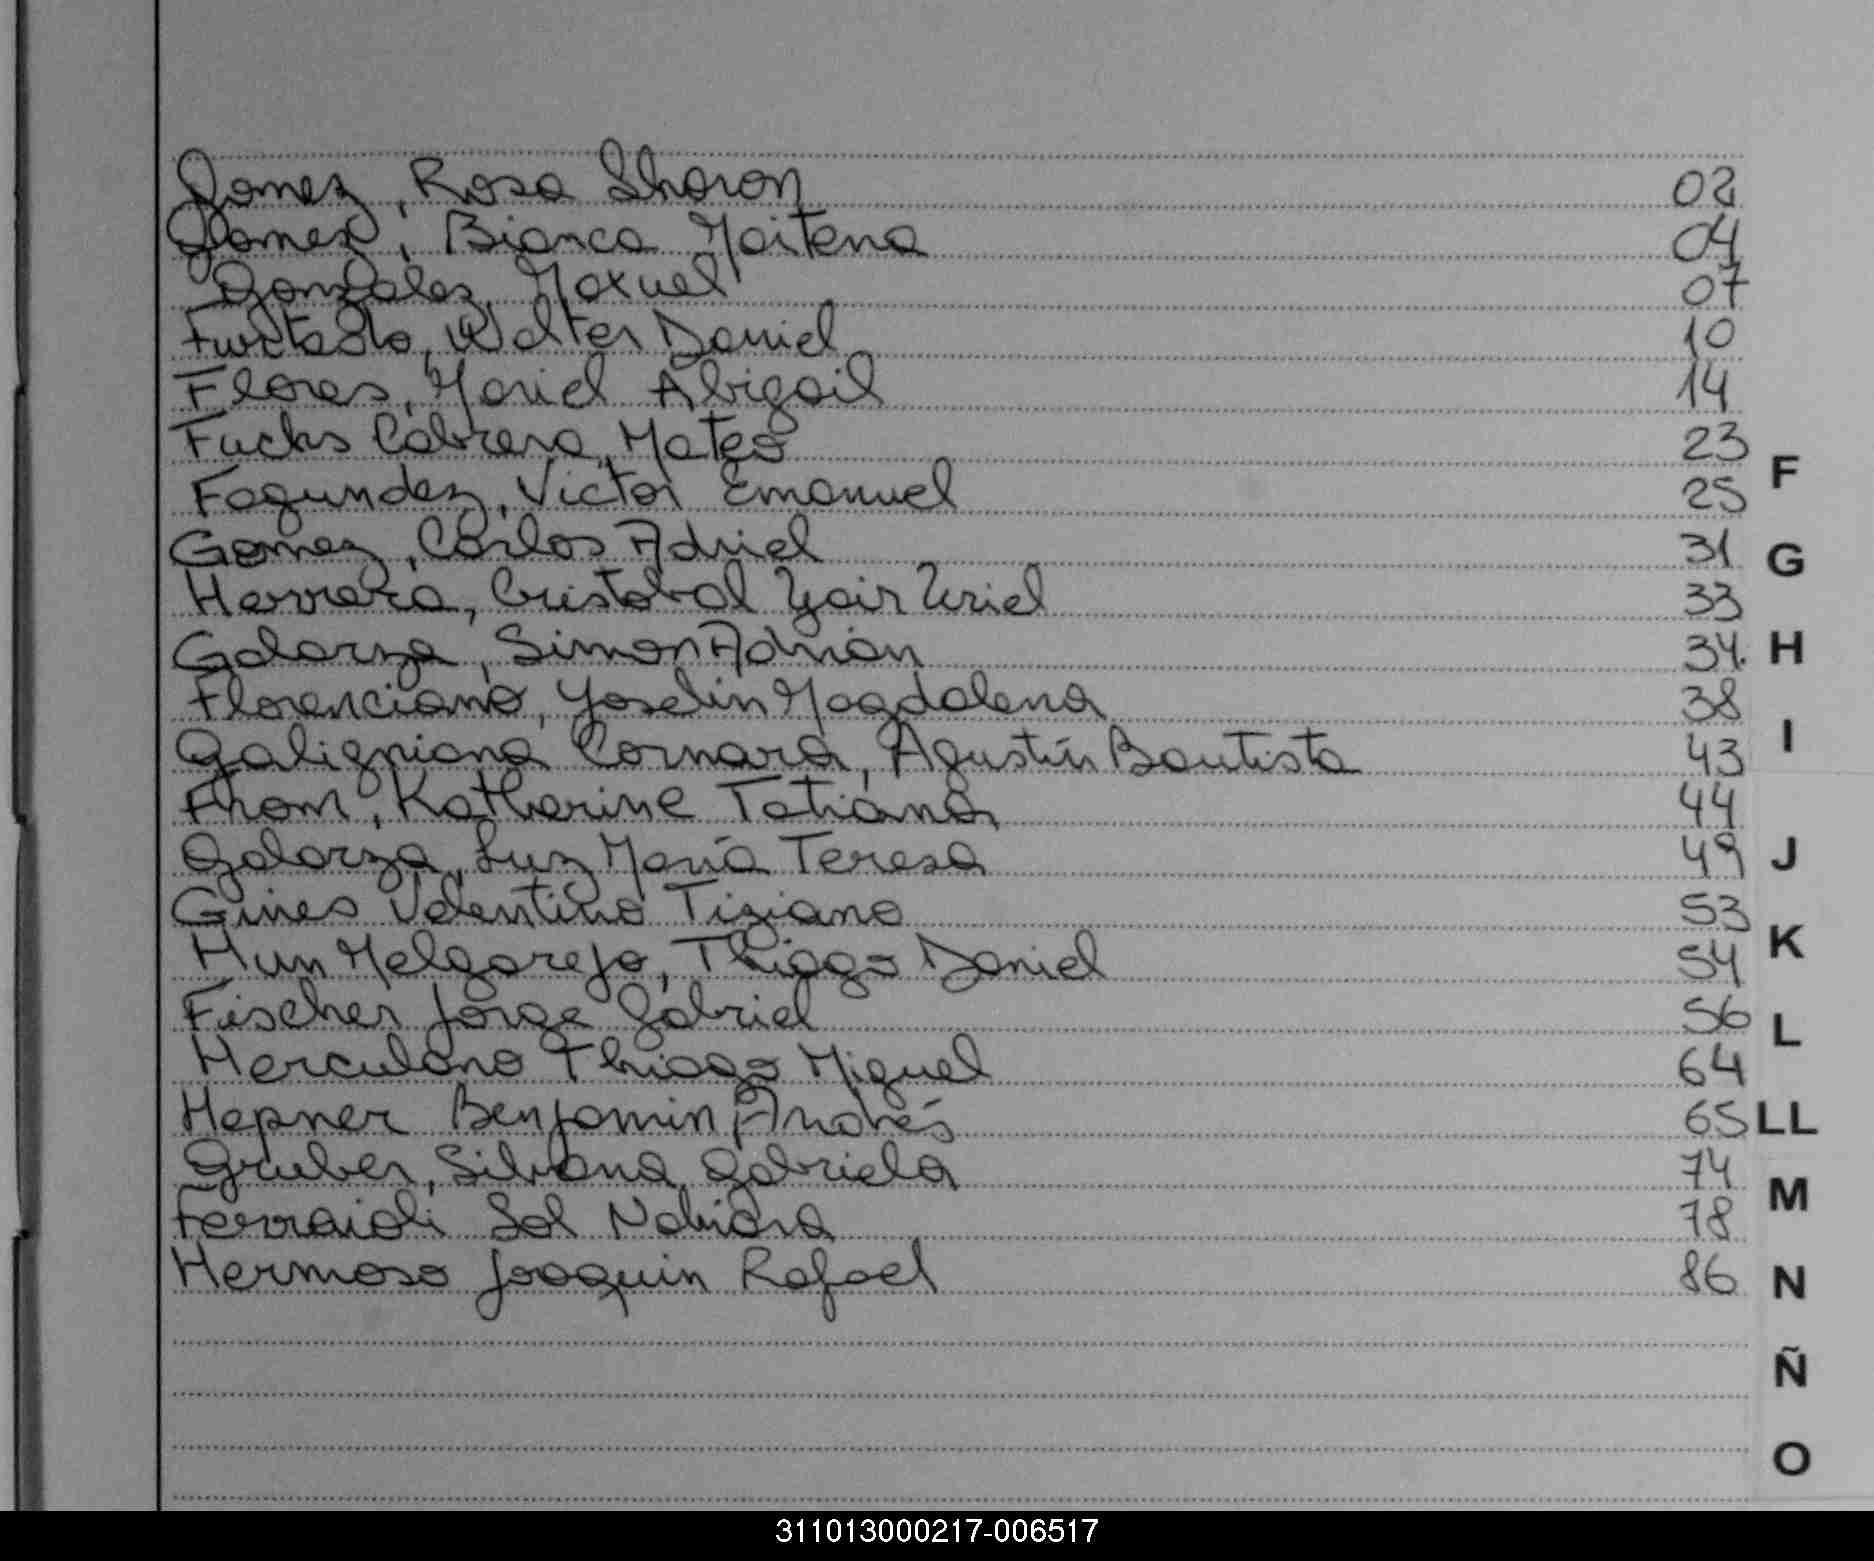 Gomez, Rosa Sharon 02
Gomez, Bianca Maitena 04
Gonzalez, Maxuel 07
Furtado, Walter Daniel 10
Flores, Mariel Abigail 14
Fucks Cabrera, Mateo 23
Fagundez, Victor Emanuel 25
Gomez, Carlos Adriel 31
Herrera, Cristobal Yair Uriel 33
Galarza, Simon Adrián 34
Florenciano, Yoselin Magdalena 38
Galigniana Cornara, Agustín Bautista 43
From, Katherine Tatiana 44
Galarza, Luz María Teresa 49
Gines Valentino Tiziano 53
Hun Melgarejo, Thiago Daniel 54
Fischer Jorge Gabriel 56
Herculano Thiago Miguel 64
Hepner Benjamin Andrés 65
Gruber, Silvana Gabriela 74
Ferraioli Sol Nahiara 78
Hermoso Joaquin Rafael 86
F
G
H
I
J
K
L
LL
M
N
Ñ
O
311013000217-006517